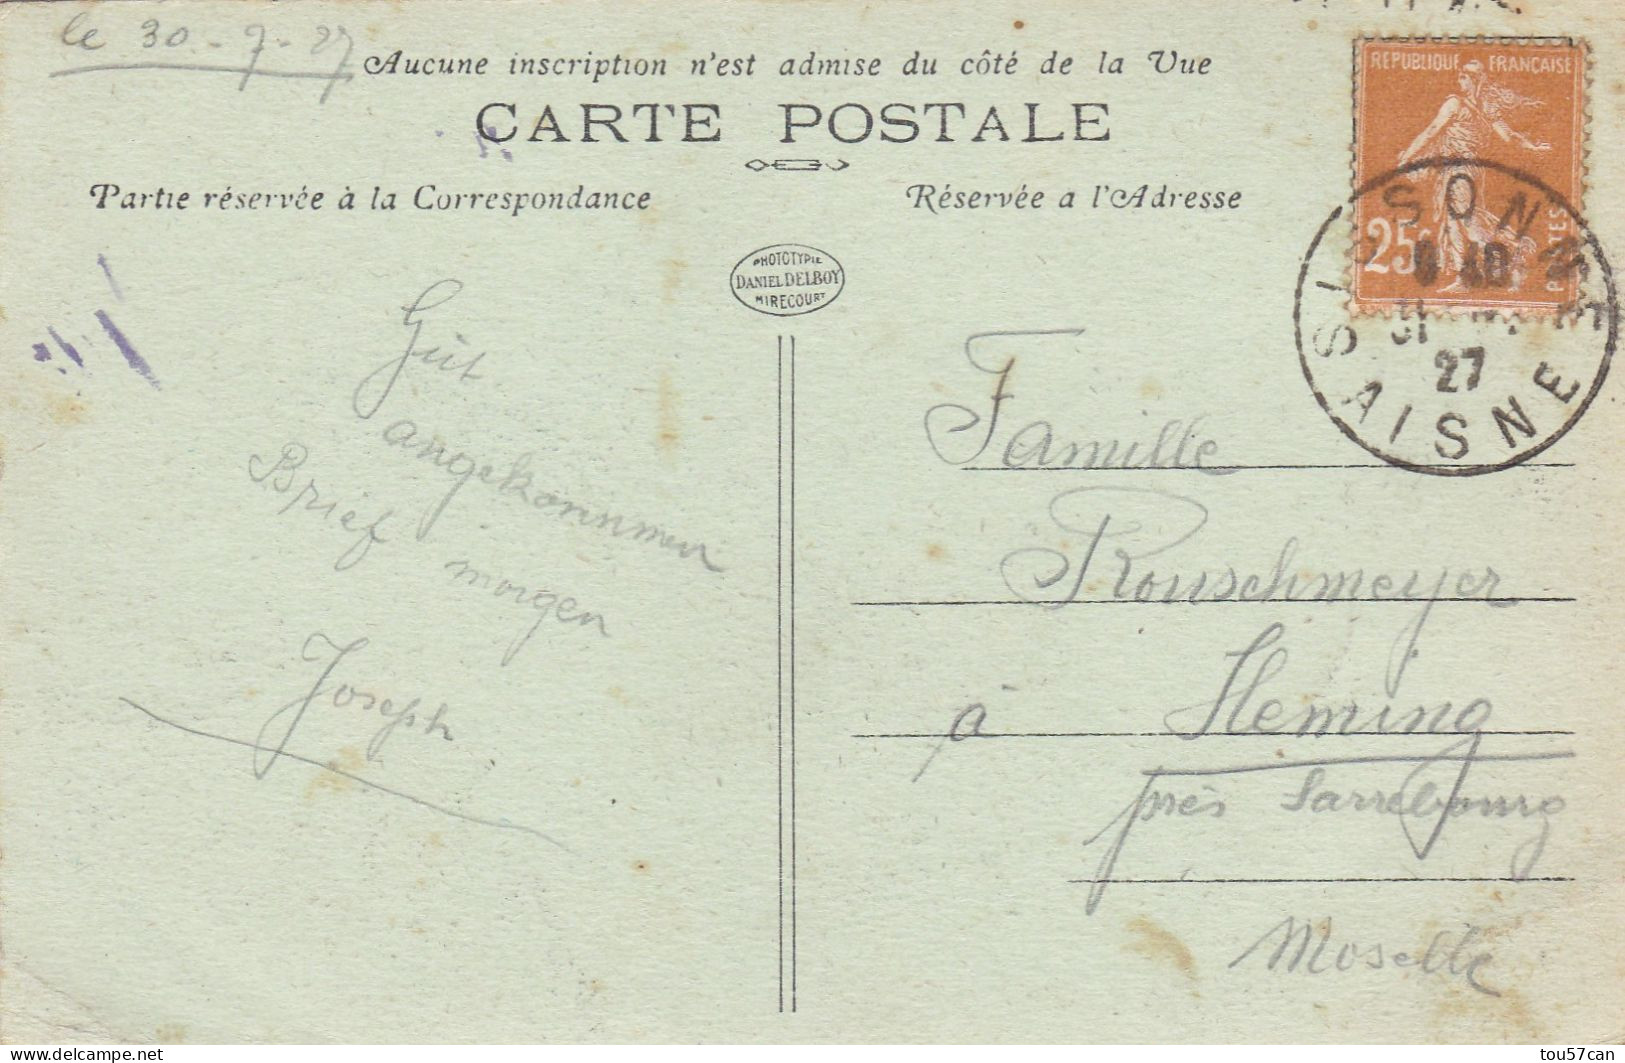 le 30-7-27
Aucune inscription n'est admise du côté de la Vue
CARTE POSTALE
Partie réservée à la Correspondance
Réservée a l'Adresse
REPUBLIQUE FRANÇAISE
25c
POSTES
SISSONNE
AISNE
27
PHOTOTYPIE
DANIEL DELBOY
MIRECOURT
Gut
angekommen
Brief morgen
Joseph
Famille
Rouschmeyer
à Heming
près Sarrebourg
Moselle
tou57can